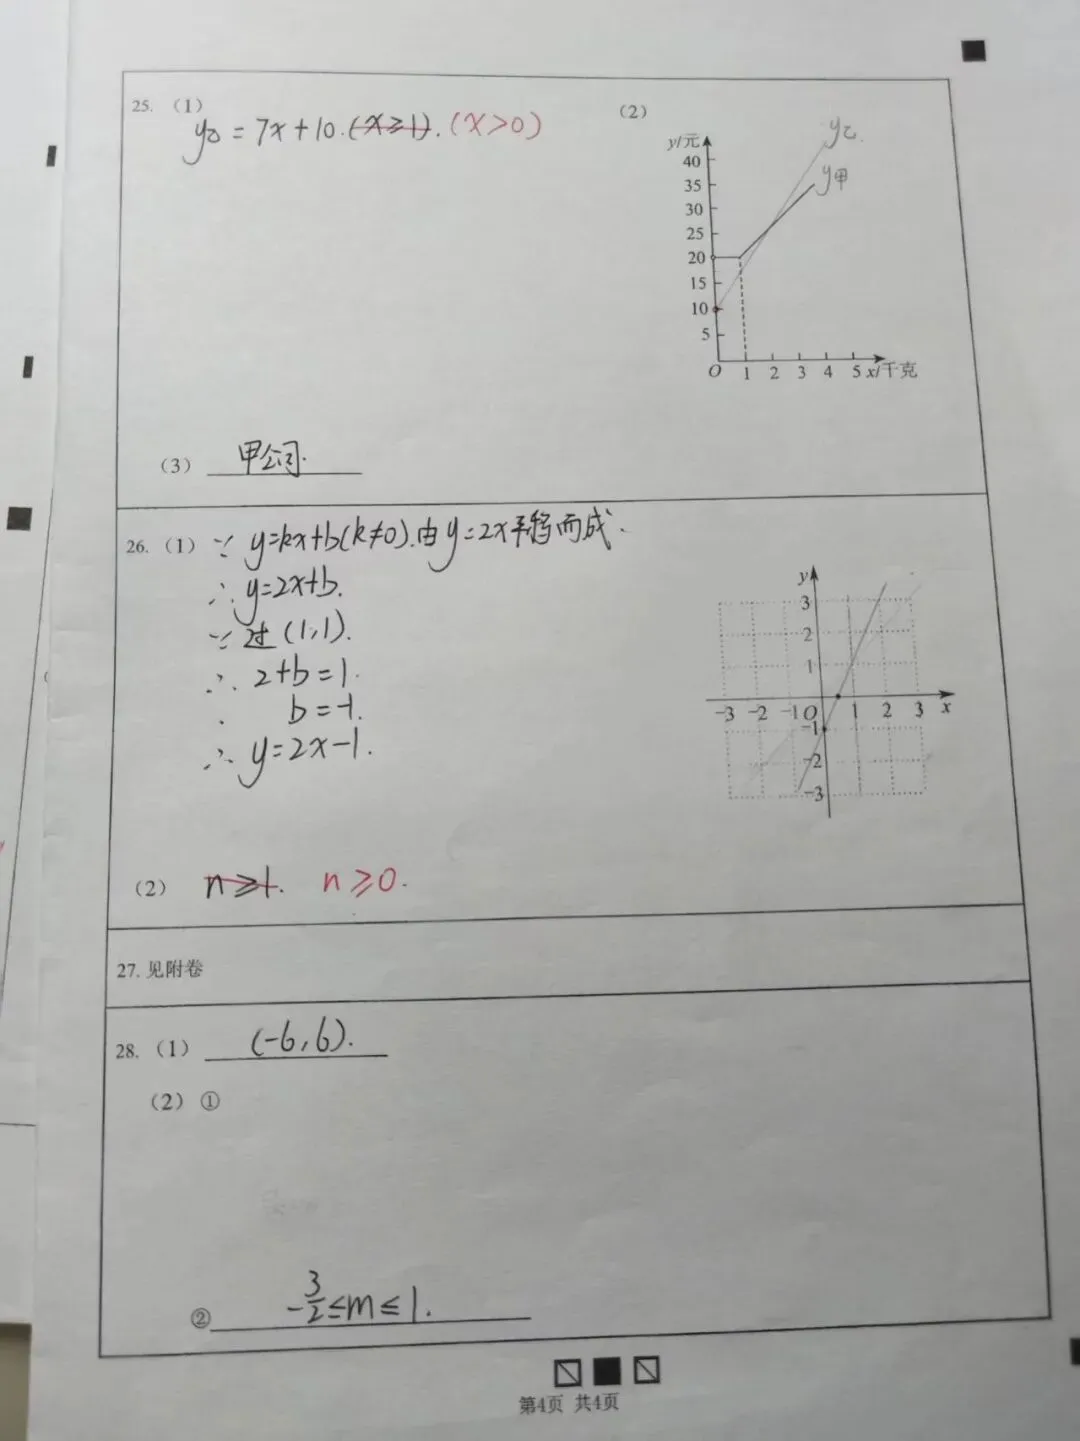 25. (1)
y乙 = 7x+10.(x≥1).(x>0)
(2)
y/元
40
35
30
25
20
15
10
5
O 1 2 3 4 5 x/千克
y乙.
y甲
(3) 甲公司.
26. (1) ∵ y=kx+b(k≠0).由y=2x平移而成.
∴ y=2x+b.
∵ 过(1,1).
∴ 2+b=1.
b=-1.
∴ y=2x-1.
y
3
2
1
-3 -2 -1 O 1 2 3 x
-1
-2
-3
(2) n≥1. n≥0.
27. 见附卷
28. (1) (-6,6).
(2) ①
② -3/2≤m≤1.
第4页 共4页